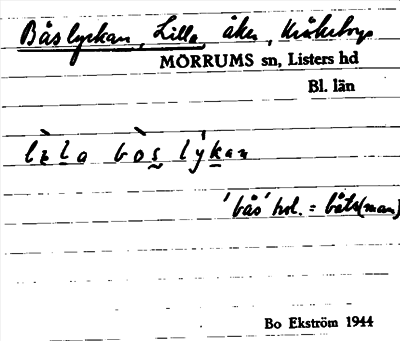 Båslyckan, Lilla åker,
MÖRRUMS sn, Listers hd
Bl. län
lìla bòs lýkan
'bås' hol. = båts(man)
Bo Ekström 1944